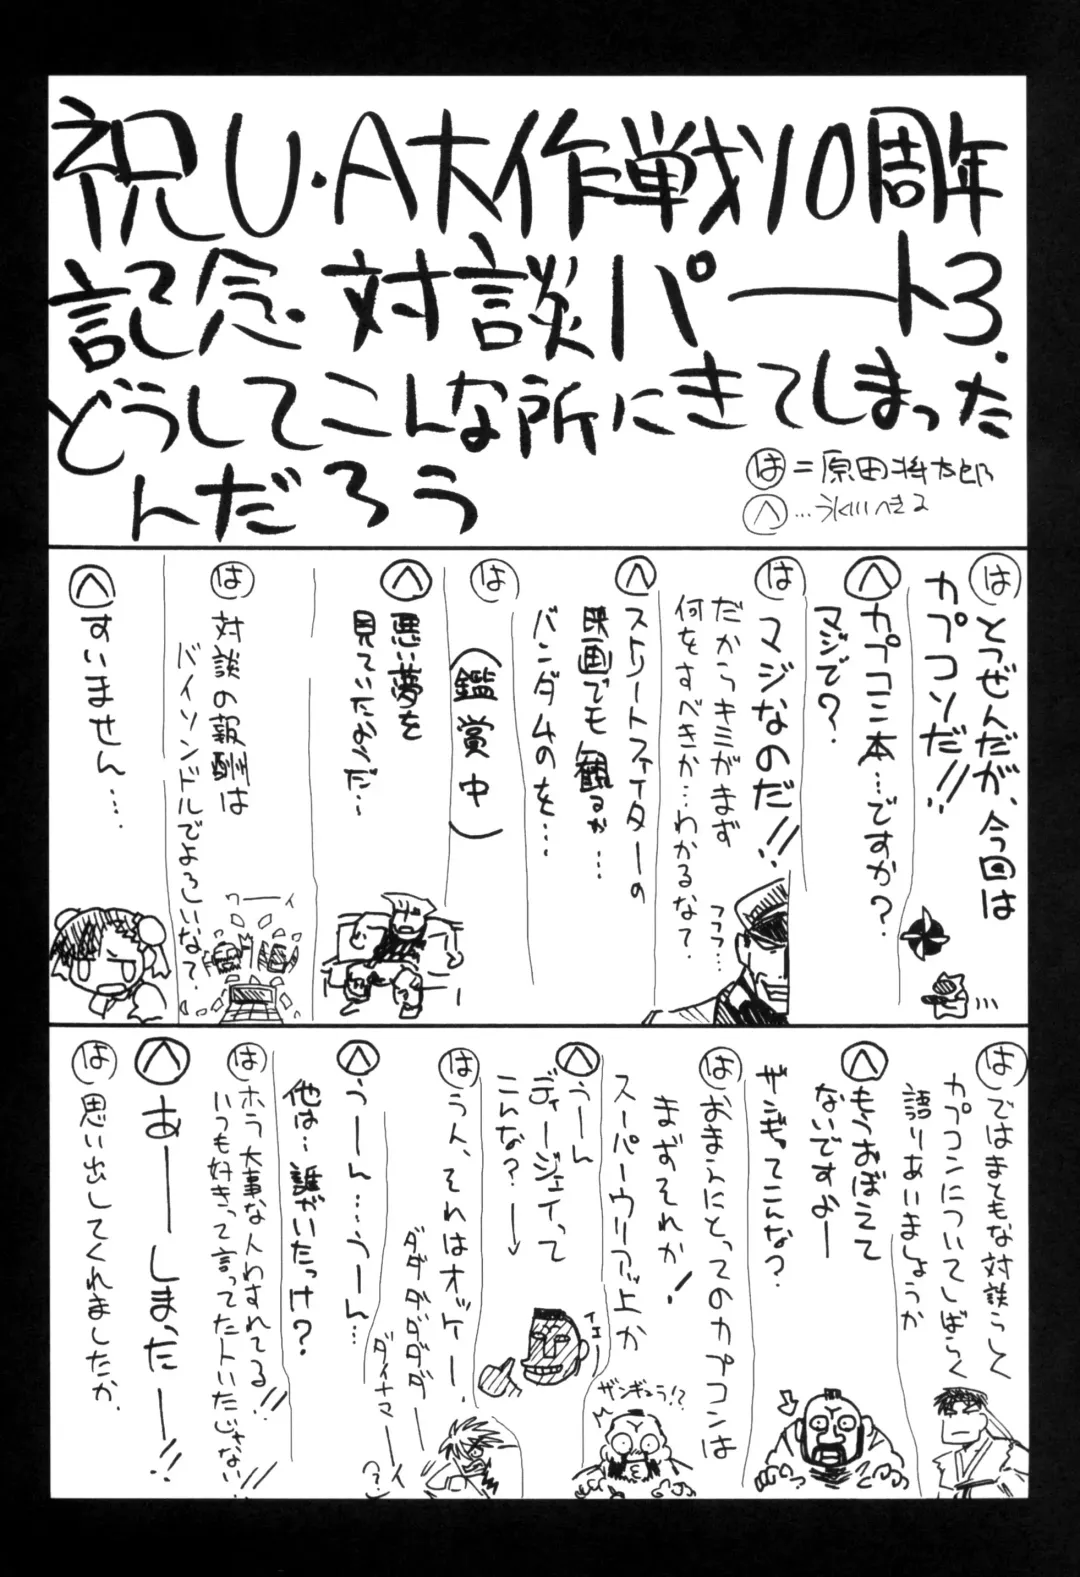 祝U・A大作戦10周年
記念・対談パート3.
どうしてこんな所にきてしまった
んだろう
は=原田将太郎
へ…氷川へきる
は とつぜんだが、今回は
カプコンだ!!
へ カプコン本…ですか?
マジで?
は マジなのだ!!
だからキミがまず
何をすべきか…わかるな?
フフフ…
へ ストリートファイターの
映画でも観るか…
バンダムのを…
は (鑑賞中)
へ 悪い夢を
見ていたようだ…
は 対談の報酬は
バイソンドルでよろしいな?
ワーーイ
へ すいません…
は ではまともな対談らしく
カプコンについてしばらく
語りあいましょうか
へ もうおぼえて
ないですよー
ザンギってこんな?
は おまえにとってのカプコンは
まずそれか!
スーパーウリアッ上か
ザンギュラ!?
へ うーん
ディージェイって
こんな?→
イエー
は うん、それはオッケー.
ダダダダダダー
ダイナマーイ
?
へ うーん…うーん…
他は…誰がいたっけ?
は ホラ大事な人わすれてる!!
いつも好きって言ってた人いたじゃない!!
へ あーーしまったー!!
は 思い出してくれましたか.